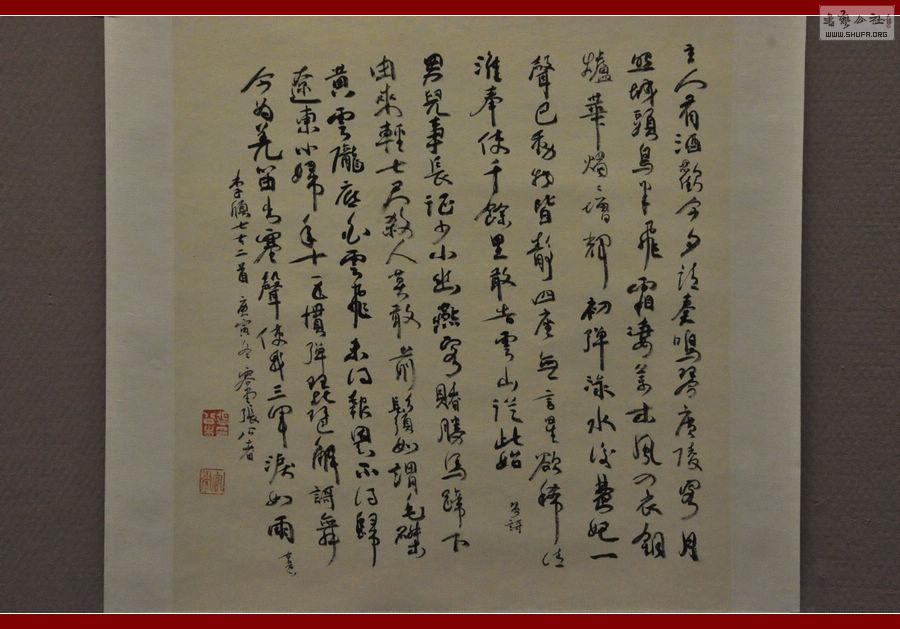 主人有酒歡今夕請奏鳴琴廣陵客月
照城頭烏半飛霜淒萬木風入衣銅
爐華燭燭增輝初彈淥水後楚妃一
聲已動物皆靜四座無言星欲稀清
淮奉使千餘里敢告雲山從此始 琴謌
男兒事長征少小幽燕客賭勝馬蹄下
由來輕七尺殺人莫敢前鬚如蝟毛磔
黃雲隴底白雲飛未得報恩不得歸
遼東小婦年十五慣彈琵琶解謌舞
今為羌笛出塞聲使我三軍淚如雨 古意
李頎七古二首 庚寅冬 容堂張公者
書藝公社
WWW.SHUFA.ORG